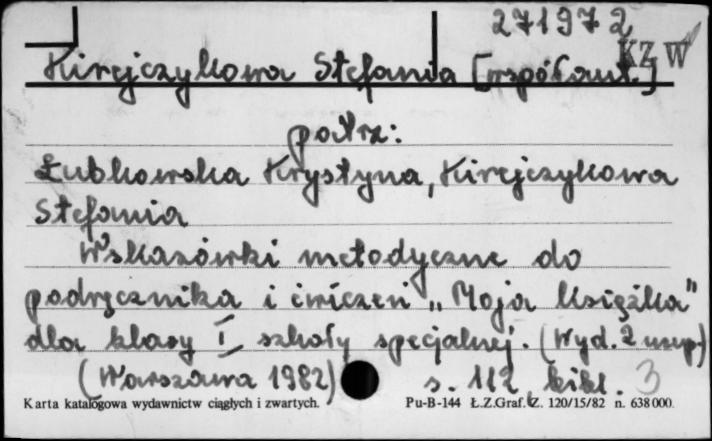 271972
KZ W
Kirejczykowa Stefania [współaut.]
patrz:
Łubkowska Krystyna, Kirejczykowa
Stefania
Wskazówki metodyczne do
podręcznika i ćwiczeń „Moja książka"
dla klasy I szkoły specjalnej. (Wyd. 2 uzup.)
(Warszawa 1982) s. 112, bibl. 3
Karta katalogowa wydawnictw ciągłych i zwartych. Pu-B-144 Ł.Z.Graf. Z. 120/15/82 n. 638000.